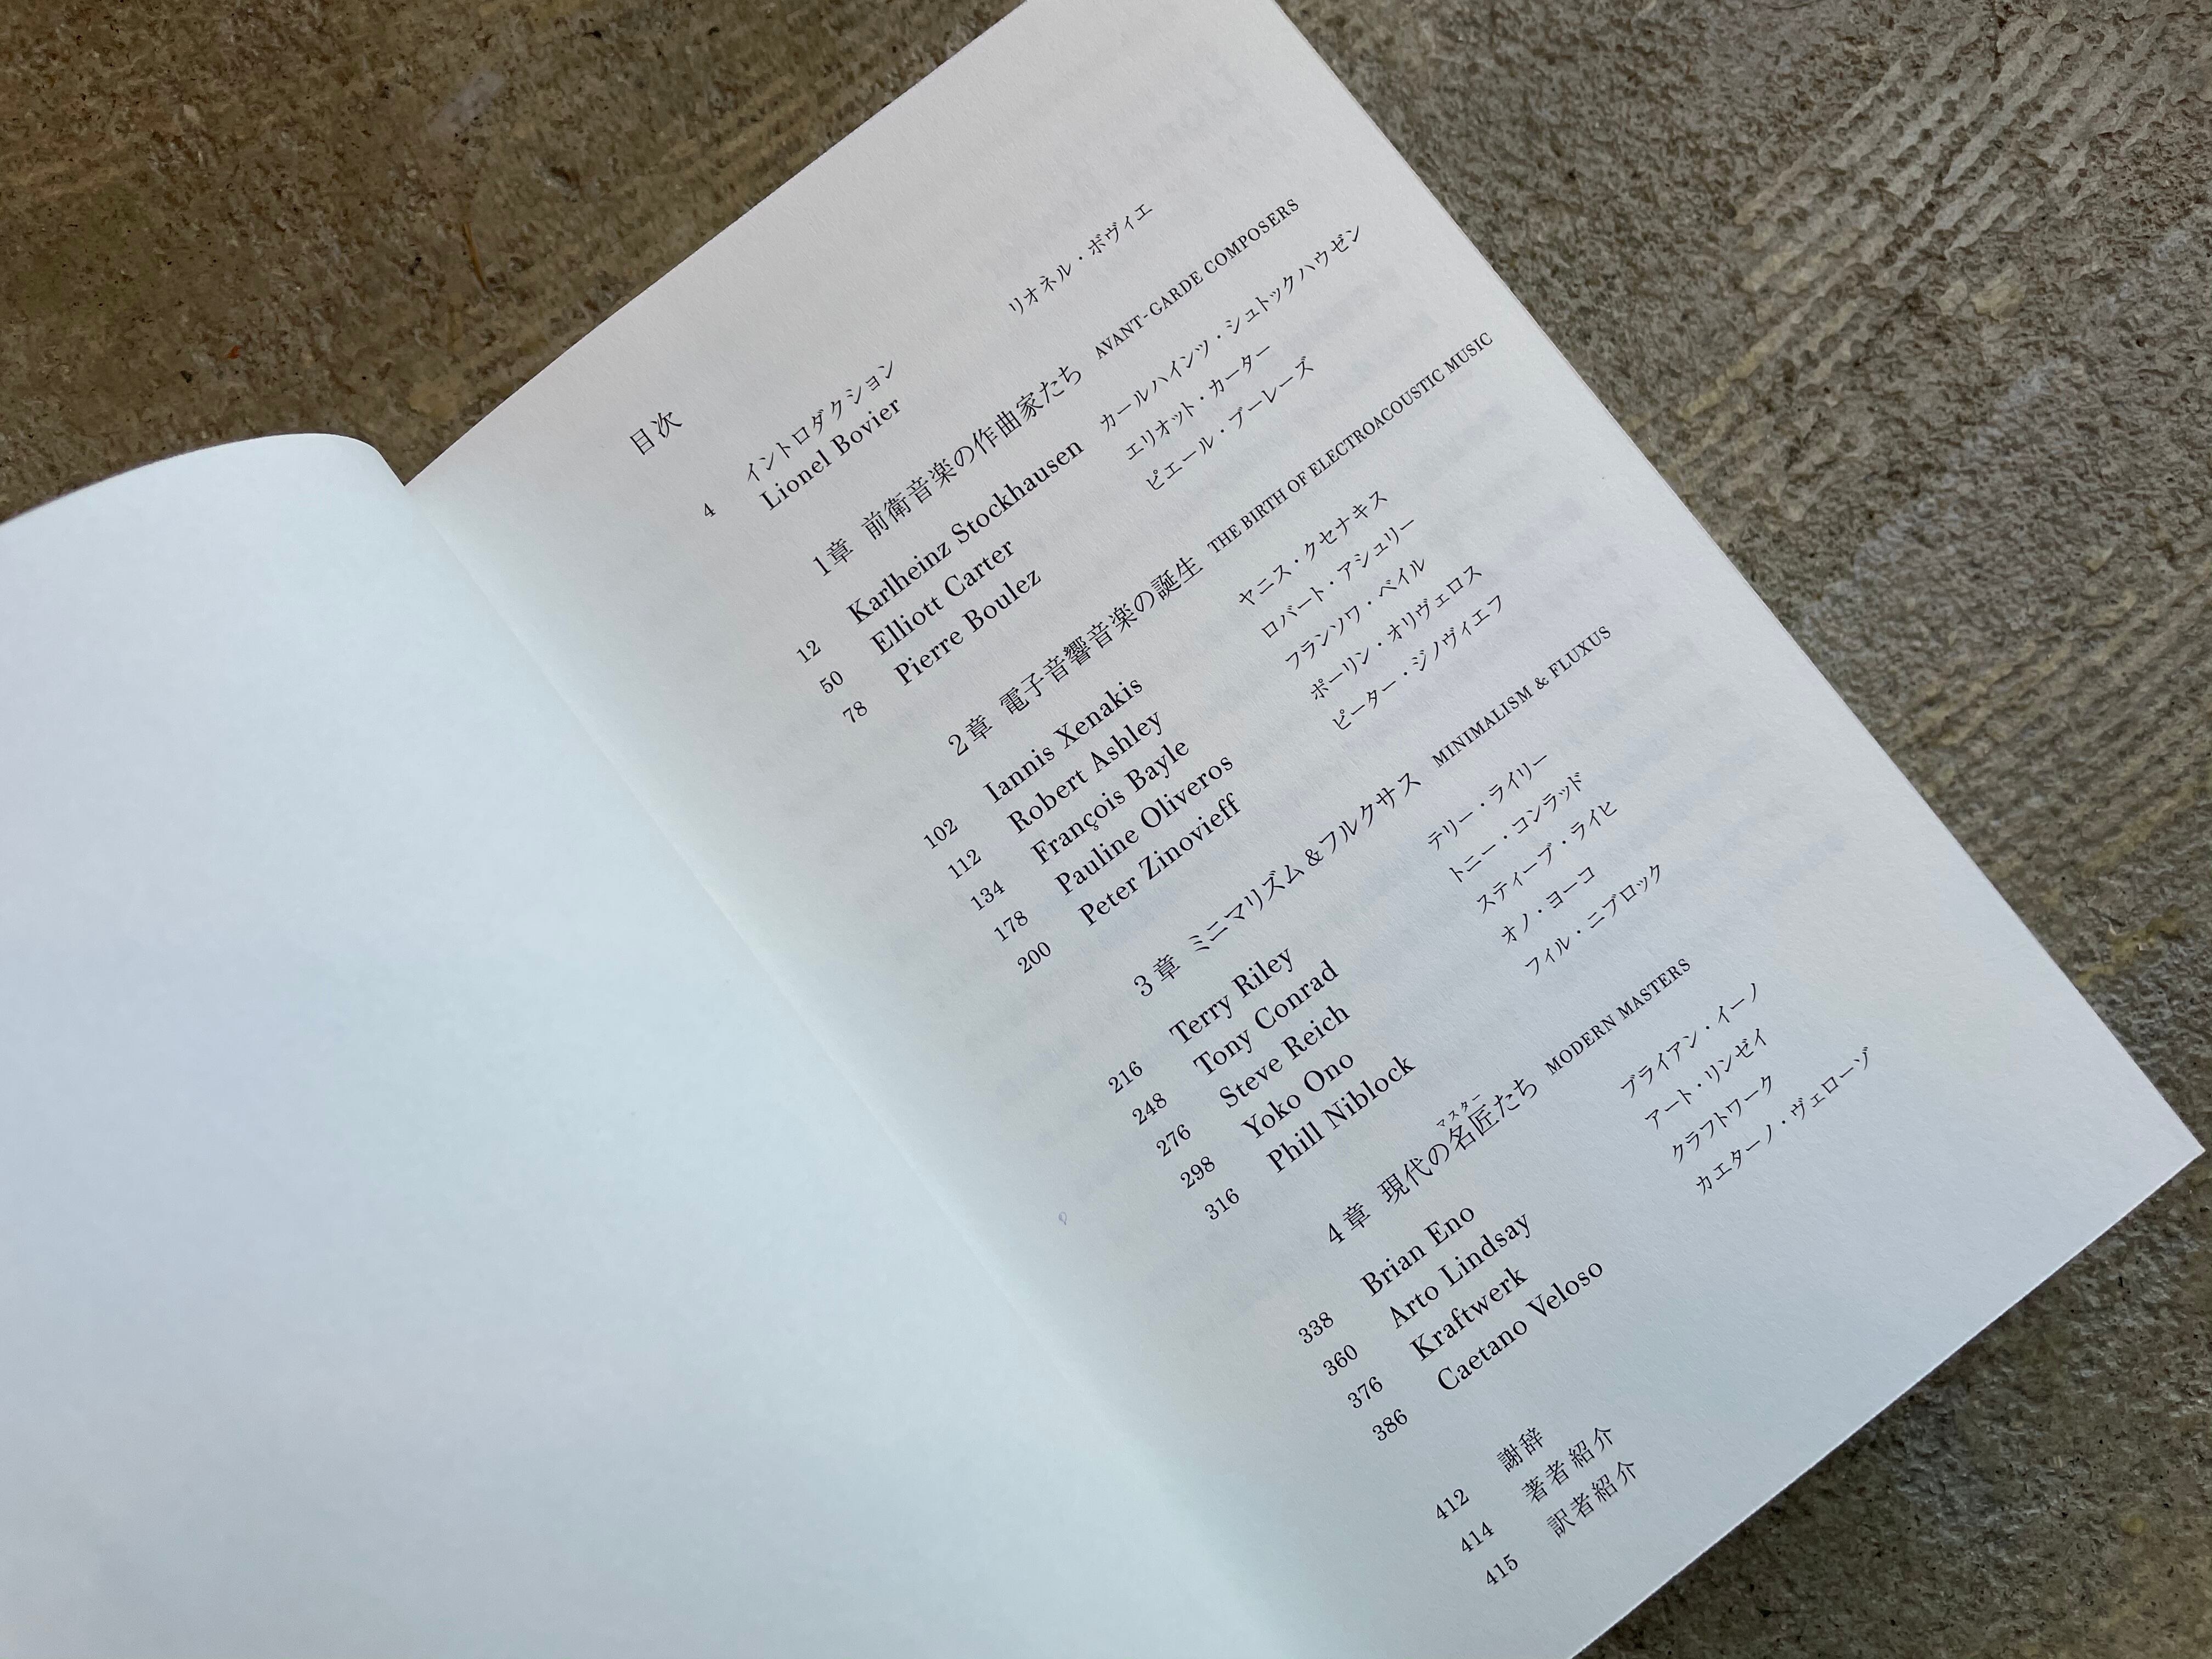 目次
4 イントロダクション
Lionel Bovier リオネル・ボヴィエ
1章 前衛音楽の作曲家たち AVANT-GARDE COMPOSERS
12 Karlheinz Stockhausen カールハインツ・シュトックハウゼン
50 Elliott Carter エリオット・カーター
78 Pierre Boulez ピエール・ブーレーズ
2章 電子音響音楽の誕生 THE BIRTH OF ELECTROACOUSTIC MUSIC
102 Iannis Xenakis ヤニス・クセナキス
112 Robert Ashley ロバート・アシュリー
134 François Bayle フランソワ・ベイル
178 Pauline Oliveros ポーリン・オリヴェロス
200 Peter Zinovieff ピーター・ジノヴィエフ
3章 ミニマリズム&フルクサス MINIMALISM & FLUXUS
216 Terry Riley テリー・ライリー
248 Tony Conrad トニー・コンラッド
276 Steve Reich スティーブ・ライヒ
298 Yoko Ono オノ・ヨーコ
316 Phill Niblock フィル・ニブロック
マスター
4章 現代の名匠たち MODERN MASTERS
338 Brian Eno ブライアン・イーノ
360 Arto Lindsay アート・リンゼイ
376 Kraftwerk クラフトワーク
386 Caetano Veloso カエターノ・ヴェローゾ
412 謝辞
414 著者紹介
415 訳者紹介